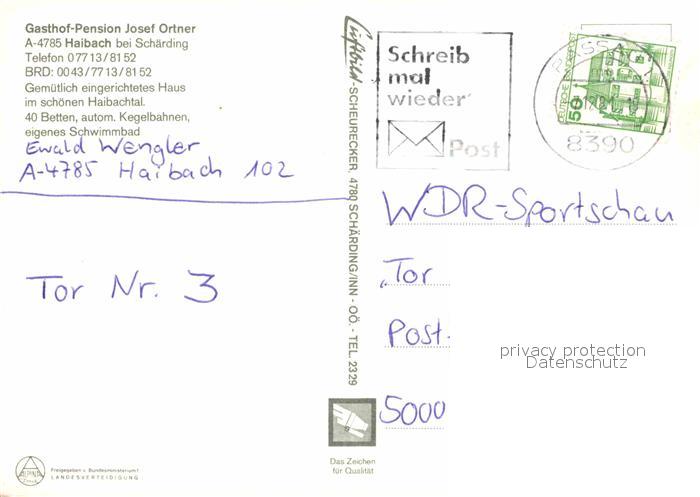 Gasthof-Pension Josef Ortner
A-4785 Haibach bei Schärding
Telefon 07713/8152
BRD: 0043/7713/8152
Gemütlich eingerichtetes Haus
im schönen Haibachtal.
40 Betten, autom. Kegelbahnen,
eigenes Schwimmbad
Ewald Wengler
A-4785 Haibach 102
Tor Nr. 3
ALPINA
Freigegeben v. Bundesministerium f.
LANDESVERTEIDIGUNG
Luftbild-SCHEURECKER, 4780 SCHÄRDING/INN - OÖ. - TEL. 2329
Das Zeichen
für Qualität
Schreib
mal
wieder
Post
PASSAU
8390
DEUTSCHE BUNDESPOST
50
WDR-Sportschau
„Tor
Post.
5000
privacy protection
Datenschutz